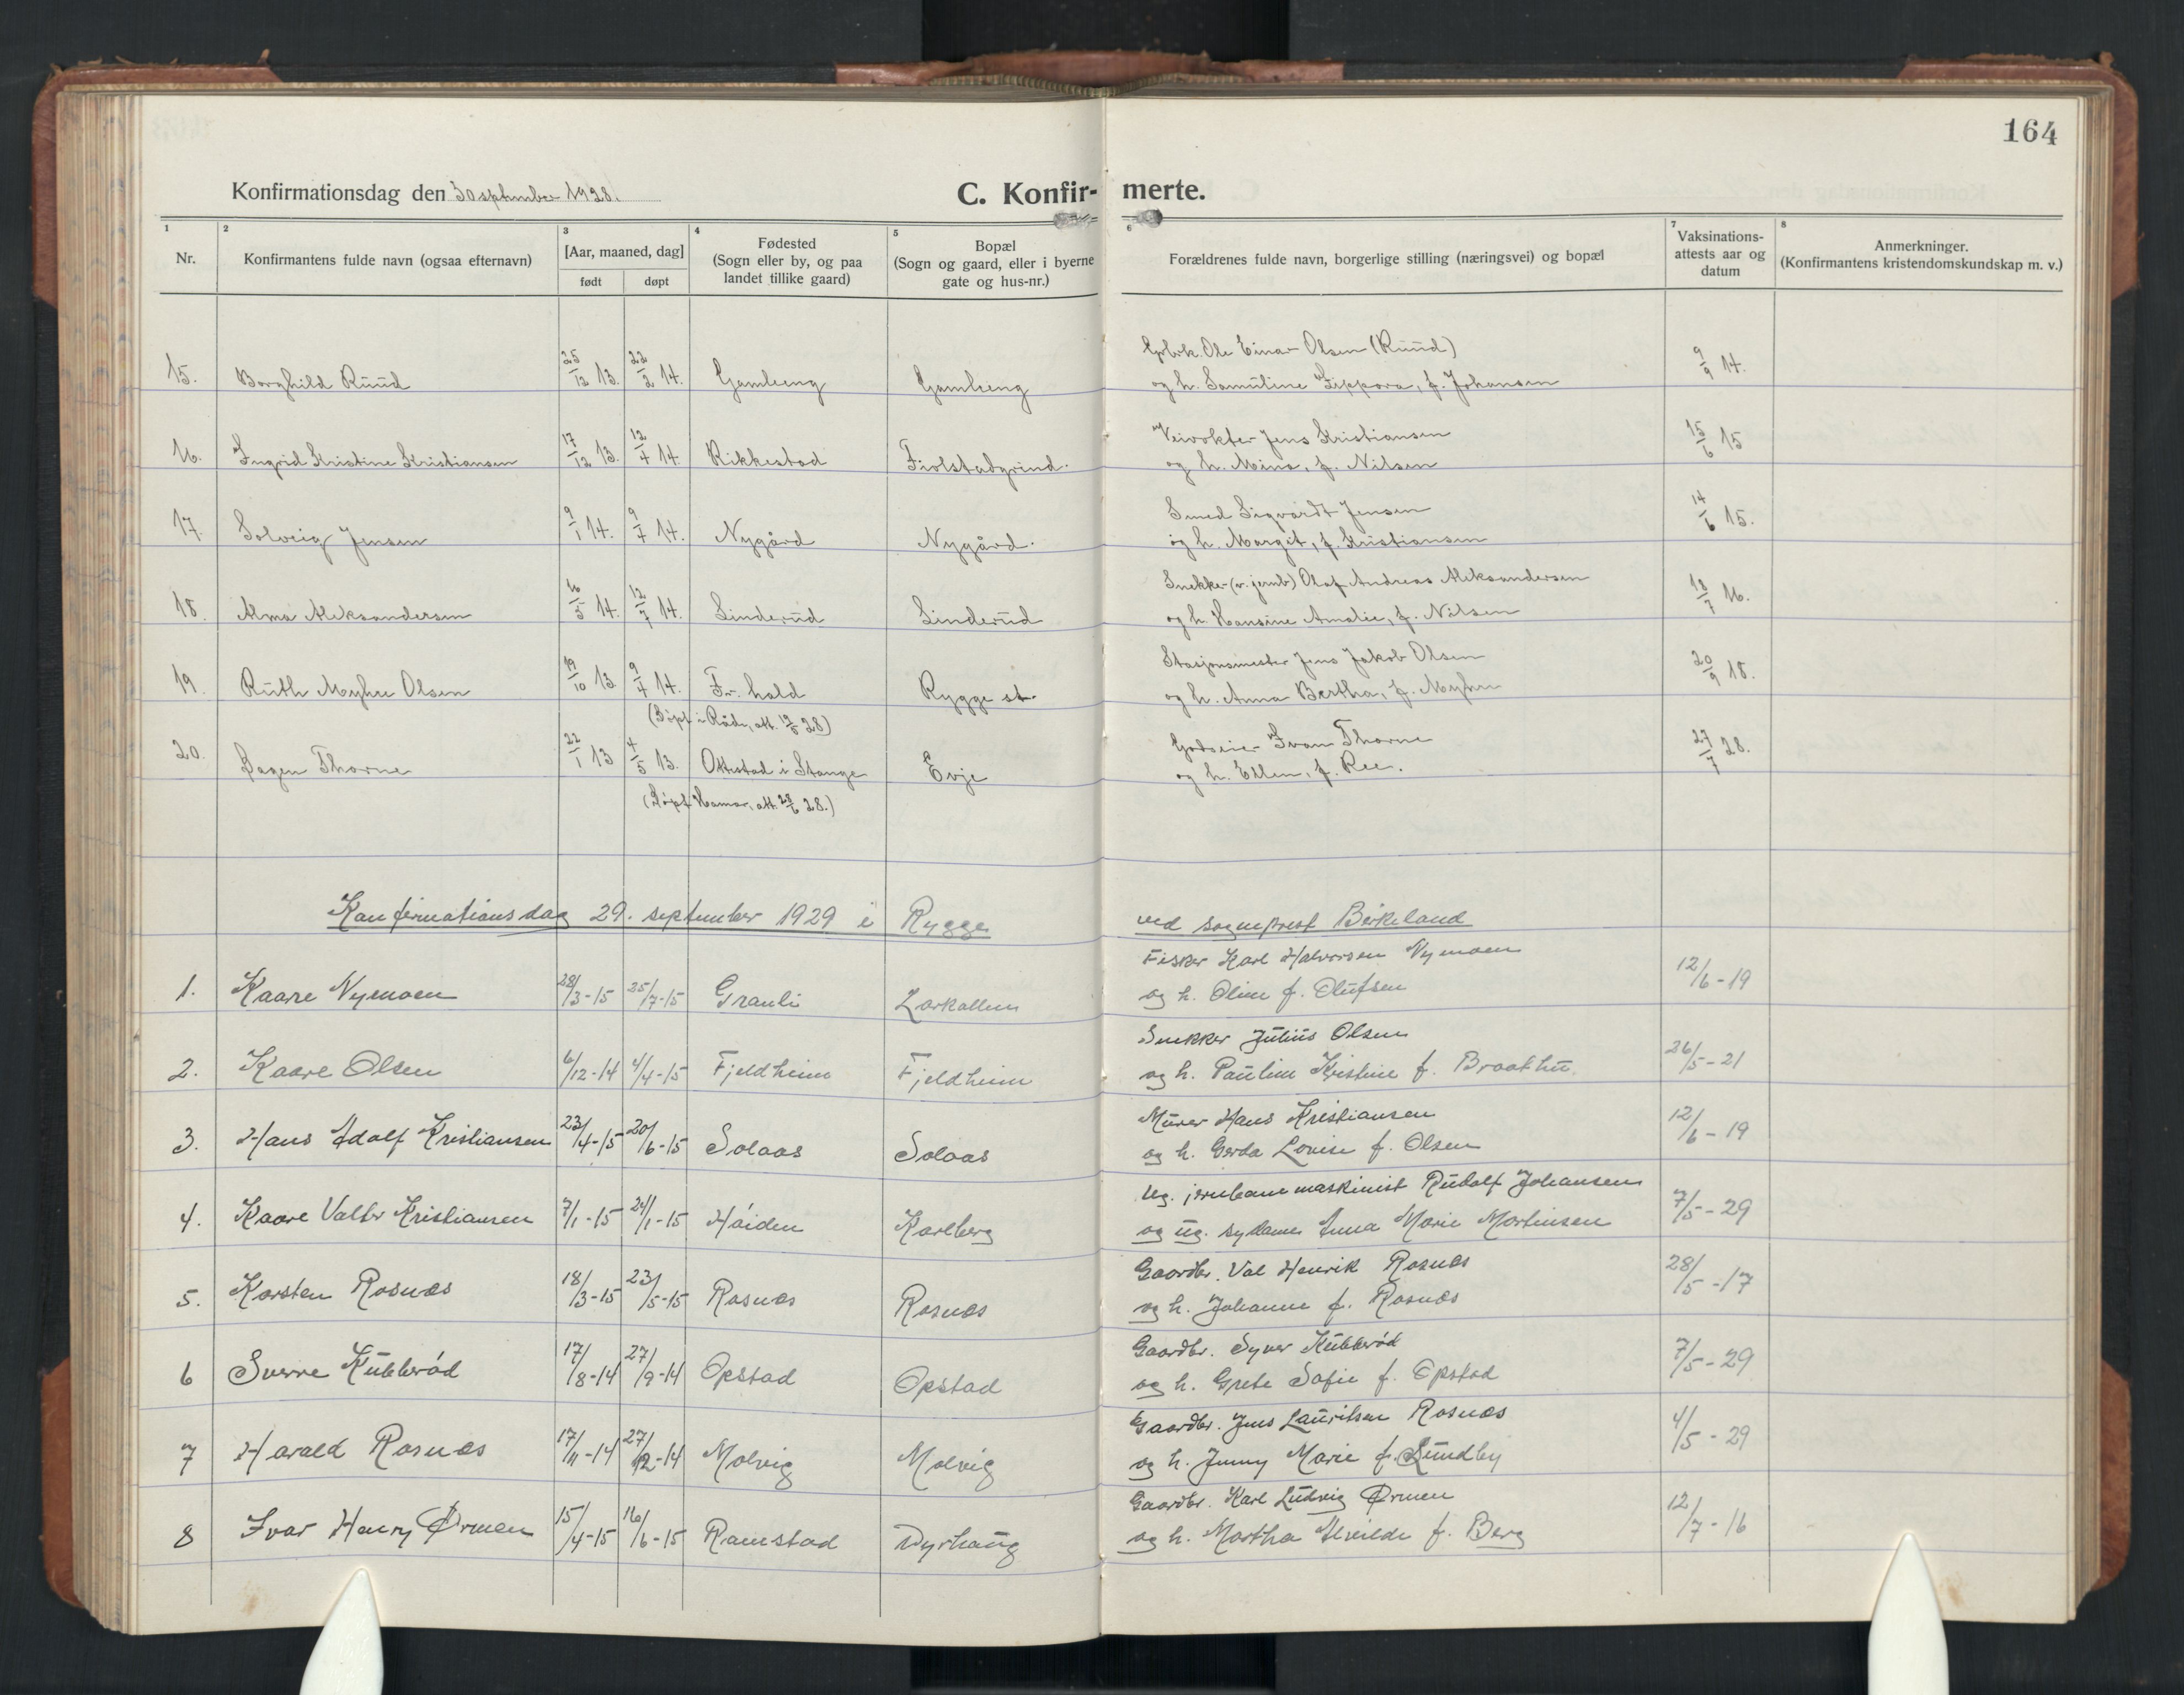 164
Konfirmationsdag den 30 september 1928.
C. Konfir-merte.
1 Nr.
2 Konfirmantens fulde navn (ogsaa efternavn)
3 [Aar, maaned, dag] født døpt
4 Fødested (Sogn eller by, og paa landet tillike gaard)
5 Bopæl (Sogn og gaard, eller i byerne gate og hus-nr.)
6 Forældrenes fulde navn, borgerlige stilling (næringsvei) og bopæl
7 Vaksinations-attests aar og datum
8 Anmerkninger. (Konfirmantens kristendomskundskap m. v.)
Gbrk. Ole Einar Olsen (Ruud)
15. Borghild Ruud 25/12 13. 22/2 14. Gamleeng Gamleeng og h. Samuline Zippora, f. Johansen 9/9 14.
Veivokter Jens Kristiansen
16. Ingrid Kristine Kristiansen 17/12 13. 12/4 14. Rikkestad Fiolstadgrind. og h. Mina, f. Nilsen 15/6 15
Smed Sigvardt Jensen
17. Solveig Jensen 9/1 14. 9/7 14. Nygård Nygård. og h. Margit, f. Kristiansen 14/6 15.
Snekker (v. jernb) Olaf Andreas Aleksandersen
18. Alma Aleksandersen 16/5 14. 12/7 14. Linderud Linderud og h. Hansine Amalie, f. Nilsen 13/7 16.
Stasjonsmester Jens Jakob Olsen
19. Ruth Myhre Olsen 19/10 13. 9/4 14. Fr. hald Rygge st. og h. Anna Bertha, f. Myhre 20/9 18.
(Døpt i Råde, att. 12/5 28)
Godseier Ivan Thorne
20. Dagen Thorne 22/1 13 4/5 13. Ottestad i Stange Evje og h. Ellen, f. Ree. 27/7 28.
(Døpt Hamar, att. 28/6 28.)
Konfirmationsdag 29. september 1929 i Rygge ved sogneprest Birkeland
Fisker Karl Halvorsen Nymoen
1. Kaare Nymoen 28/3-15 25/7-15 Granli Larkollen og h. Oline f. Olufsen 12/6-19
Snekker Julius Olsen
2. Kaare Olsen 6/12-14 4/4-15 Fjeldheim Fjeldheim og h. Pauline Kristine f. Braathu 26/5-21
Murer Hans Kristiansen
3. Hans Adolf Kristiansen 23/4-15 20/6-15 Solaas Solaas og h. Gerda Lovise f. Olsen 12/6-19
Ug. jernbanemaskinist Rudolf Johansen
4. Kaare Valter Kristiansen 7/1-15 24/1-15 Háiden Karlberg og ug. sydame Anna Marie Martinsen 7/5-29
Gaardbr. Val Henrik Rosnæs
5. Karsten Rosnæs 18/3-15 23/5-15 Rosnæs Rosnæs og h. Johanne f. Rosnæs 28/5-17
Gaardbr. Syver Kubberød
6 Sverre Kubberød 17/8-14 27/9-14 Opstad Opstad og h. Grete Sofie f. Opstad 7/5-29
Gaardbr. Jens Lauritsen Rosnæs
7 Harald Rosnæs 17/11-14 27/12-14 Molvig Molvig og h. Jenny Marie f. Lundby 4/5-29
Gaardbr. Karl Ludvig Ørmen
8 Ivar Henry Ørmen 15/4-15 16/6-15 Ramstad Dyrhaug og h. Martha Alvilde f. Berg 12/7-16